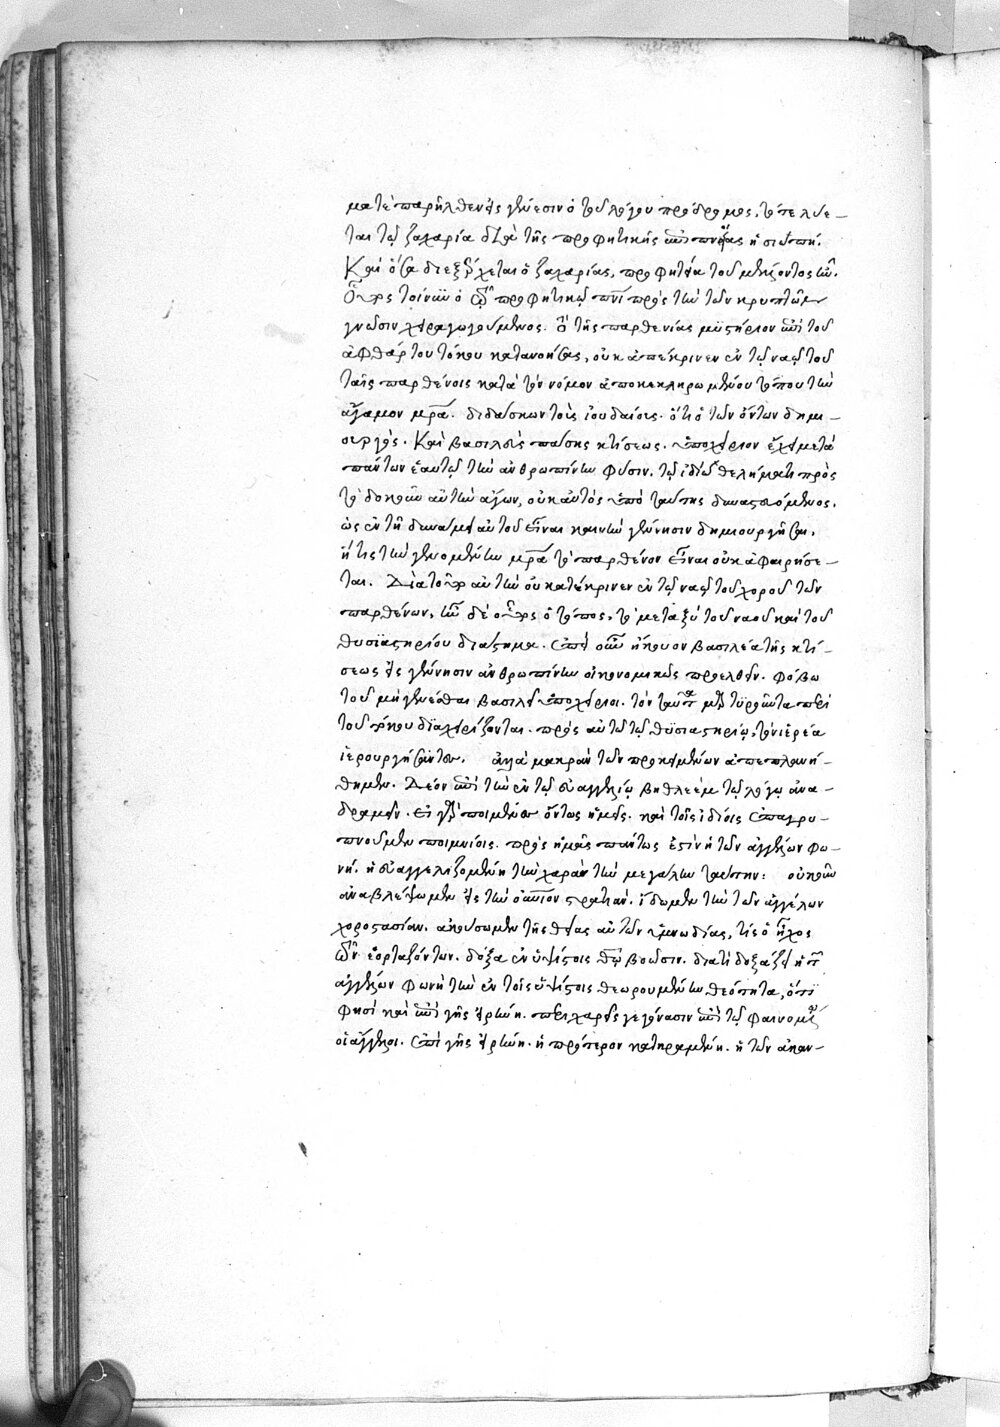 ματέπαρῆλθεν εἰς γένεσιν ὁ τοῦ λόγου πρόδρομος, τότε λύε-
ται τῷ ζαχαρία διὰ τῆς προφητικῆς ἐπιπνοίας ἡ σιωπή.
Καὶ ὅσα διεξέρχεται ὁ ζαχαρίας, προφητεία τοῦ μέλλοντος ἦν.
Οὗτος τοίνυν ὁ τῷ προφητικῷ πνι πρὸς τὴν τῶν κρυπτῶν
γνῶσιν χειραγωγούμενος. τὸ τῆς παρθενίας μυστήριον ἐπὶ τοῦ
ἀφθάρτου τόκου κατανοήσας, οὐκ ἀπέκρινεν ἐν τῷ ναῷ τοῦ
ταῖς παρθένοις κατὰ τὸν νόμον ἀποκεκληρωμένου τόπου τὴν
ἄγαμον μρα. διδάσκων τοὺς ἰουδαίους. ὅτι ὁ τῶν ὄντων δημι-
ουργός. Καὶ βασιλεὺς πάσης κτίσεως. ὑποχείριον ἔχει μετὰ
πάντων ἑαυτῷ τὴν ἀνθρωπίνην φύσιν. τῷ ἰδίῳ θελήματι πρὸς
τὸ δοκοῦν αὐτὴν ἄγων, οὐκ αὐτὸς ὑπὸ ταύτης δυναστευόμενος.
ὡς ἐν τῇ δυνάμει αὐτοῦ εἶναι καινὴν γέννησιν δημιουργῆσαι,
ἥτις τὴν γενομένην μρα τὸ παρθένον εἶναι οὐκ ἀφαιρήσε-
ται. Διατοῦτο αὐτὴν οὐ κατέκρινεν ἐν τῷ ναῷ τοῦ χοροῦ τῶν
παρθένων, ἦν δὲ οὗτος ὁ τόπος, τὸ μεταξὺ τοῦ ναοῦ καὶ τοῦ
θυσιαστηρίου διάστημα. ἐπεὶ οὖν ἤκουον βασιλέα τῆς κτί-
σεως εἰς γέννησιν ἀνθρωπίνην οἰκονομικῶς προελθεῖν. φόβω
τοῦ μὴ γενέσθαι βασιλεῖ ὑποχείριοι. τὸν ταῦτα μαρτυροῦντα περὶ
τοῦ τόκου διαχειρίζονται. πρὸς αὐτῷ τῷ θυσιαστηρίῳ, τὸν ἱερέα
ἱερουργήσαντες. ἀλλὰ μακρὰν τῶν προκειμένων ἀπεπλανή-
θημεν. Δέον ἐπὶ τὴν ἐν τῷ εὐαγγελίῳ βηθλεὲμ τῷ λόγῳ ἀνα-
δραμεῖν. Εἰ γὰρ ποιμένες ὄντως ἡμεῖς. καὶ τοῖς ἰδίοις ἐπαγρυ-
πνοῦμεν ποιμνίοις. πρὸς ἡμᾶς πάντως ἐστὶν ἡ τῶν ἀγγέλων φω-
νή. ἡ εὐαγγελιζομένη τὴν χαρὰν τὴν μεγάλην ταύτην: οὐκοῦν
ἀναβλέψωμεν εἰς τὴν οὐάνιον στρατιάν. ἴδωμεν τὴν τῶν ἀγγέλων
χοροστασίαν. ἀκούσωμεν τῆς θείας αὐτῶν ὑμνωδίας, τίς ὁ ἦχος
τῶν ἑορταζόντων. δόξα ἐν ὑψίστοις θῷ βοῶσιν. διατί δοξάζει ἡ τῶν
ἀγγέλων φωνὴ τὴν ἐν τοῖς ὑψίστοις θεωρουμένην θεότητα, ὅτι
φησὶ καὶ ἐπὶ γῆς εἰρήνη. περιχαρεῖς γεγόνασιν ἐπὶ τῷ φαινομένῳ
οἱ ἄγγελοι. ἐπὶ γῆς εἰρήνη. ἡ πρότερον κατηραμένη. ἡ τῶν ἀκαν-